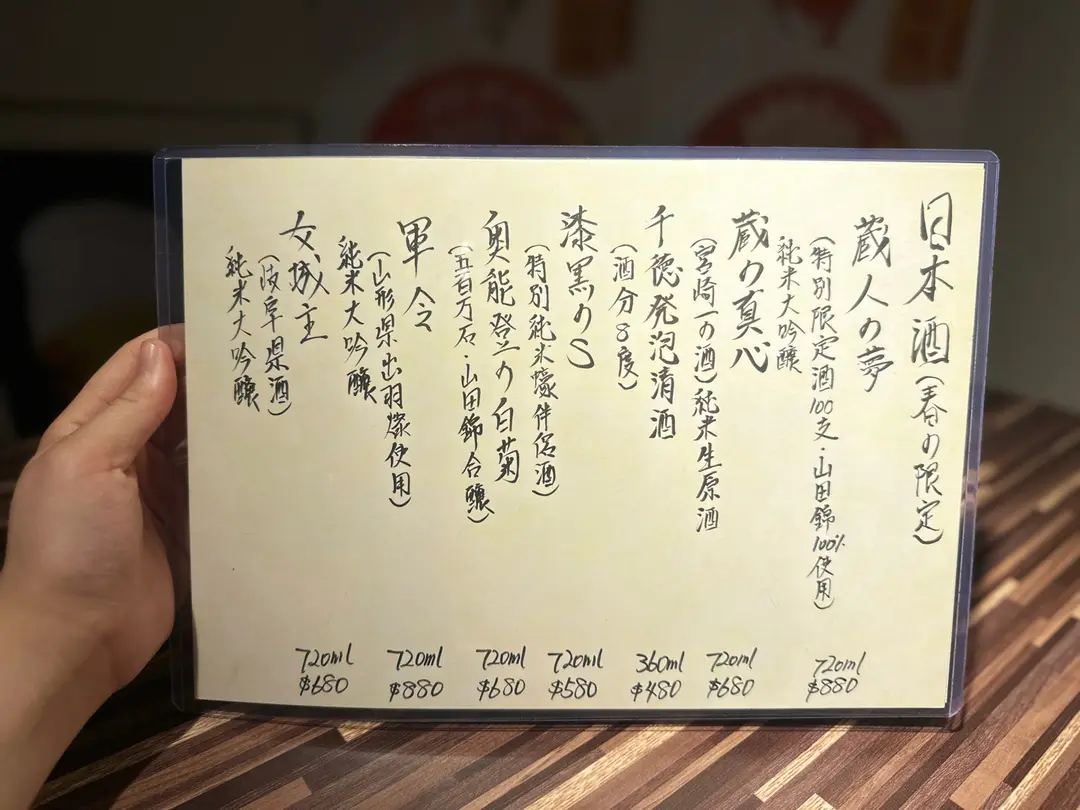 日本酒(春の限定)
蔵人の夢
(特別限定酒100支・山田錦100%使用)
純米大吟醸
720ml
$880
蔵の真心
(宮崎一の酒)純米生原酒
720ml
$680
千徳発泡清酒
(酒分8度)
360ml
$480
漆黒のS
(特別純米壕伴侶酒)
720ml
$580
奥能登の白菊
(五百万石・山田錦合醸)
720ml
$680
軍令
(山形県出羽燦使用)
純米大吟醸
720ml
$880
女城主
(岐阜県酒)
純米大吟醸
720ml
$680